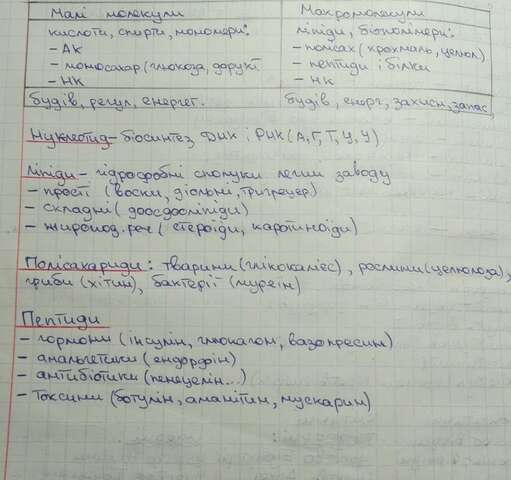 Малі молекули
Макромолекули
кислоти, спирти, мономери:
ліпіди, біополімери:
- АК
- полісах (крохмаль, целюл)
- моносахар (глюкоза,
- пептиди і білки
- НК
- НК
будів, регул, енергет.
будів, енерг, захисн, запас,
Нуклеотид - біосинтез ДНК і РНК (А, Г, Т, Ц, У)
Ліпіди - гідрофобні сполуки
- прості (воски, діольні,
- складні (
- жиропод. реч (стероїди, каротиноїди)
Полісахариди: тварини (глікокалікс), рослини (целюлоза),
гриби (хітин), бактерії (муреїн)
Пептиди
- гормони (інсулін, глюкагон, вазопресин)
- анальгетики (ендорфін)
- антибіотики (пеніцелін...)
- токсини (ботулін, аманітин, мускарин)